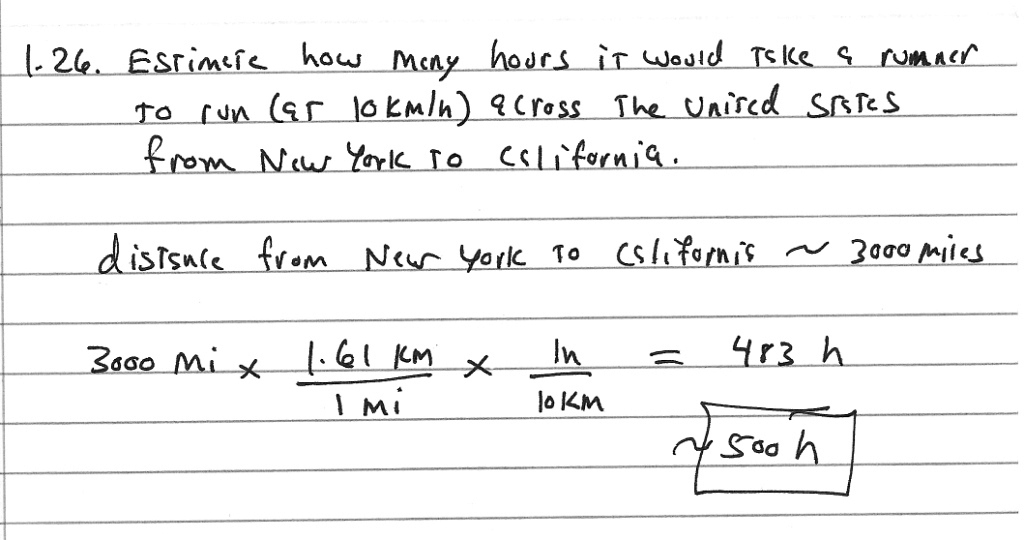 1.26. Estimate how many hours it would take a runner
to run (at 10 km/h) across the United States
from New York to California.
distance from New York to California ~ 3000 miles
3000 mi x 1.61 km / 1 mi x 1h / 10 km = 483 h
~ 500 h